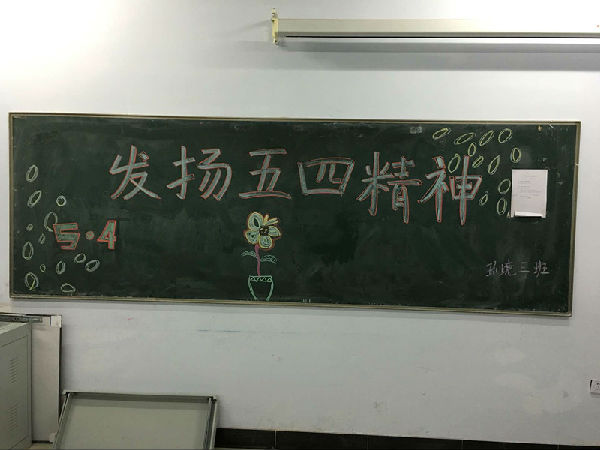 发扬五四精神
5·4
环境三班